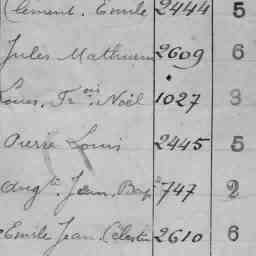 Clement. Emile 2444 5
Jules Mathurin 2609 6
Louis, Frois Noël 1027 3
Pierre Louis 2445 5
Augte Jean Bapt 747 2
Emile Jean Célestin 2610 6